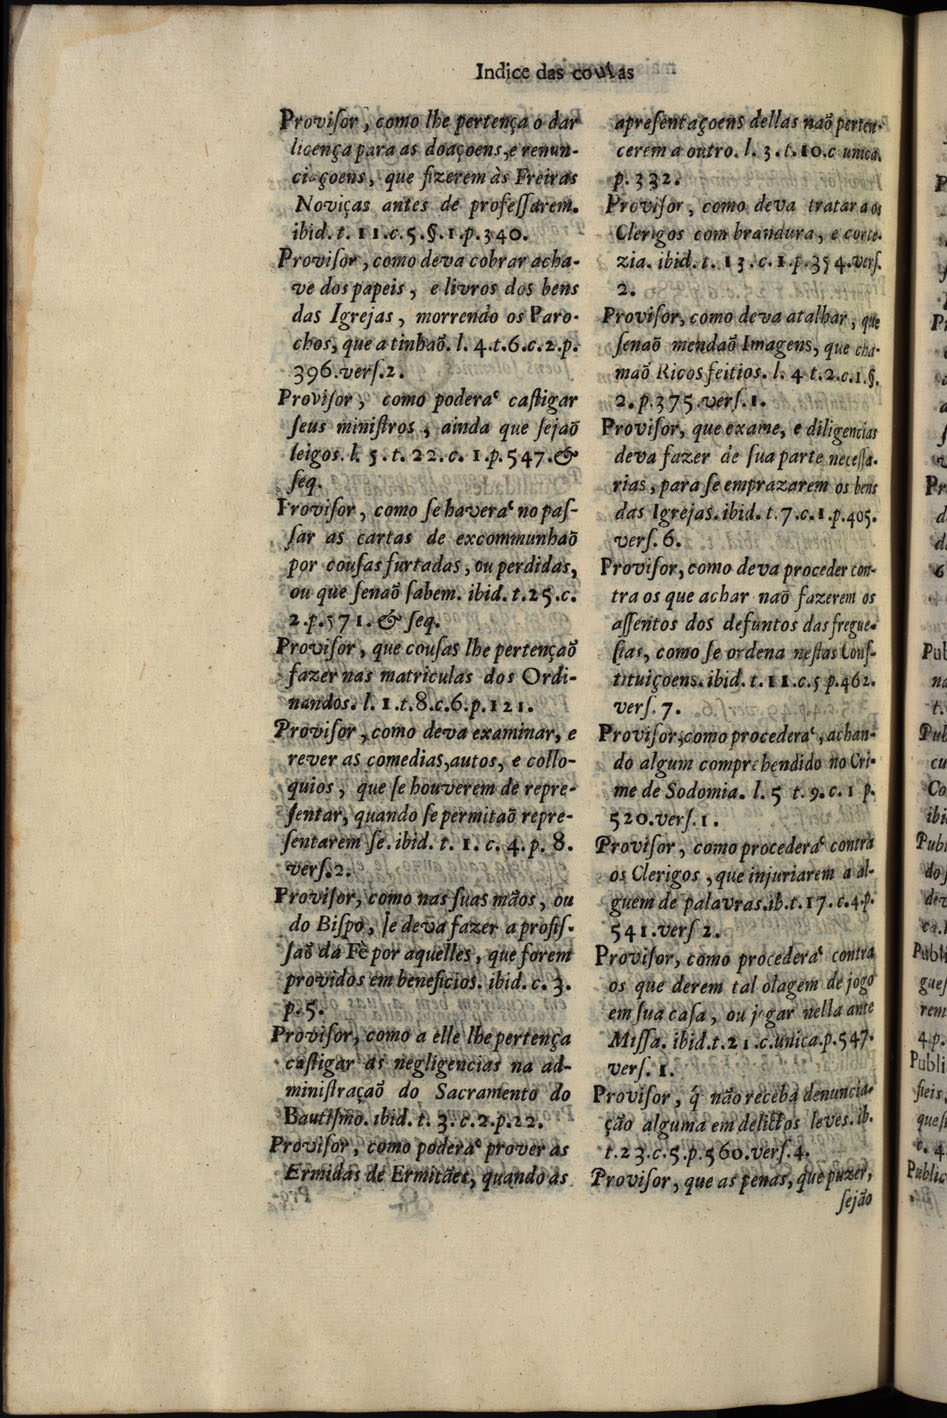 Indice das cousas
Provisor, como lhe pertença o dar
licença para as doaçoens, e renun-
ciaçoens, que fizerem às Freiras
Noviças antes de professarem.
ibid. t. 11. c. 5. §. 1. p. 340.
Provisor, como deva cobrar a cha-
ve dos papeis, e livros dos bens
das Igrejas, morrendo os Paro-
chos, que a tinhaõ. l. 4. t. 6. c. 2. p.
396. vers. 2.
Provisor, como poderà castigar
seus ministros, ainda que sejaõ
leigos. l. 5. t. 22. c. 1. p. 547. &
seq.
Provisor, como se haverà no pas-
sar as cartas de excommunhaõ
por cousas furtadas, ou perdidas,
ou que se naõ sabem. ibid. t. 25. c.
2. p. 571. & seq.
Provisor, que cousas lhe pertençaõ
fazer nas matriculas dos Ordi-
nandos. l. 1. t. 8. c. 6. p. 121.
Provisor, como deva examinar, e
rever as comedias, autos, e collo-
quios, que se houverem de repre-
sentar, quando se permitaõ repre-
sentarem se. ibid. t. 1. c. 4. p. 8.
vers. 2.
Provisor, como nas suas mãos, ou
do Bispo, se deva fazer a profis-
saõ da Fè por aquelles, que forem
providos em beneficios. ibid. c. 3.
p. 5.
Provisor, como a elle lhe pertença
castigar as negligencias na ad-
ministraçaõ do Sacramento do
Bautismo. ibid. t. 3. c. 2. p. 22.
Provisor, como poderà prover as
Ermidas de Ermitães, quando as
apresentaçoens dellas naõ perten-
cerem a outro. l. 3. t. 10. c. unica.
p. 332.
Provisor, como deva tratar aos
Clerigos com brandura, e corte-
zia. ibid. t. 13. c. 1. p. 354. vers.
2.
Provisor, como deva atalhar, que
se naõ mendaõ Imagens, que cha-
maõ Ricos feitios. l. 4 t. 2. c. 1. §.
2. p. 375. vers. 1.
Provisor, que exame, e diligencias
deva fazer de sua parte necessa-
rias, para se emprazarem os bens
das Igrejas. ibid. t. 7. c. 1. p. 405.
vers. 6.
Provisor, como deva proceder con-
tra os que achar naõ fazerem os
assentos dos defuntos das fregue-
sias, como se ordena nestas Cons-
tituiçoens. ibid. t. 11. c. 5 p. 462.
vers. 7.
Provisor, como procederà, achan-
do algum comprehendido no Cri-
me de Sodomia. l. 5 t. 9. c. 1 p.
520. vers. 1.
Provisor, como procederà contra
os Clerigos, que injuriarem a al-
guem de palavras. ib. t. 17. c. 4. p.
541. vers 2.
Provisor, como procederà contra
os que derem tal olagem de jogo
em sua casa, ou jogar nella ante
Missa. ibid. t. 21. c. unica. p. 547.
vers. 1.
Provisor, q́ não receba denuncia-
ção alguma em delictos leves. ib.
t. 23. c. 5. p. 560. vers. 4.
Provisor, que as penas, que puzer,
sejão